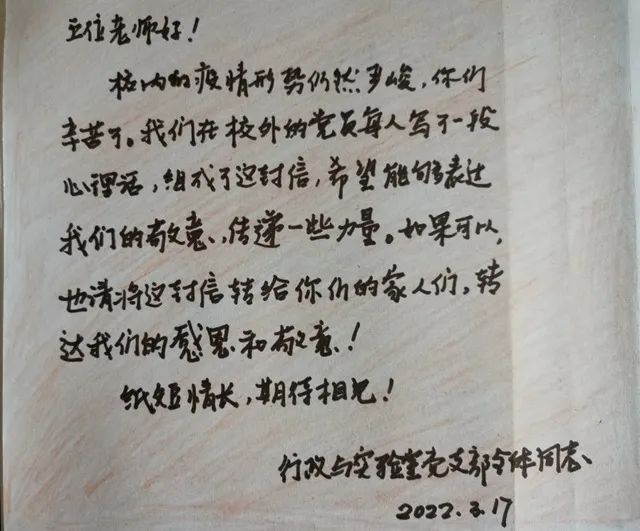 五位老师好!
校内的疫情形势仍然严峻,你们
辛苦了。我们在校外的党员每人写下一段
心理话,组成了这封信,希望能够表达
我们的敬意、传递一些力量。如果可以,
也请将这封信转给你们的家人们,转
达我们的感恩和敬意!
纸短情长,期待相见!
行政与实验室党支部全体同志
2022.3.17